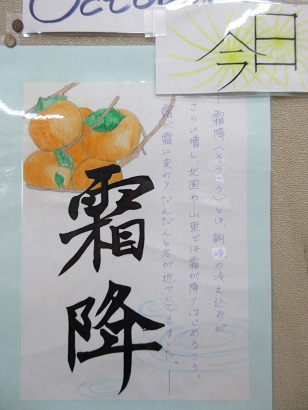 October
今日
霜降
霜降（そうこう）とは、朝晩の冷え込みが
さらに増し、北国や山里では霜が降りはじめるころ。
露が霜に変わり、だんだんと冬が近づいてきました。